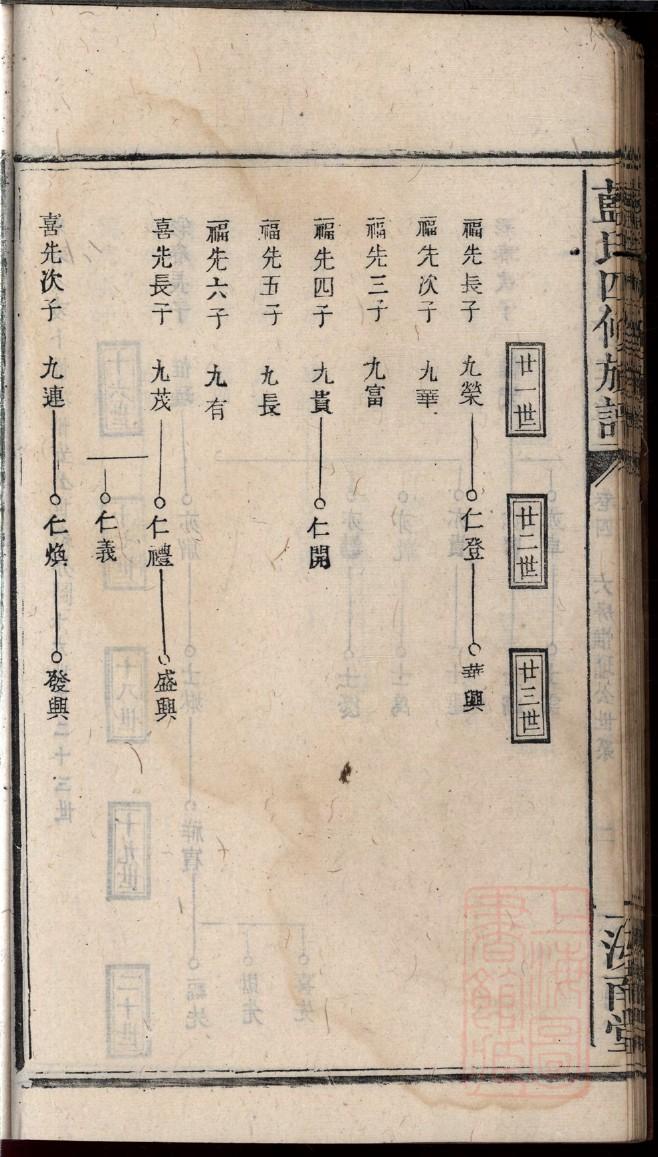 藍氏四修族譜
卷四
汝南堂
廿一世
廿二世
廿三世
福先長子 九榮 仁登 華興
福先次子 九華
福先三子 九富
福先四子 九貴 仁開
福先五子 九長
福先六子 九有
喜先長子 九茂 仁禮 盛興
仁義
喜先次子 九連 仁煥 發興
上海圖書館藏